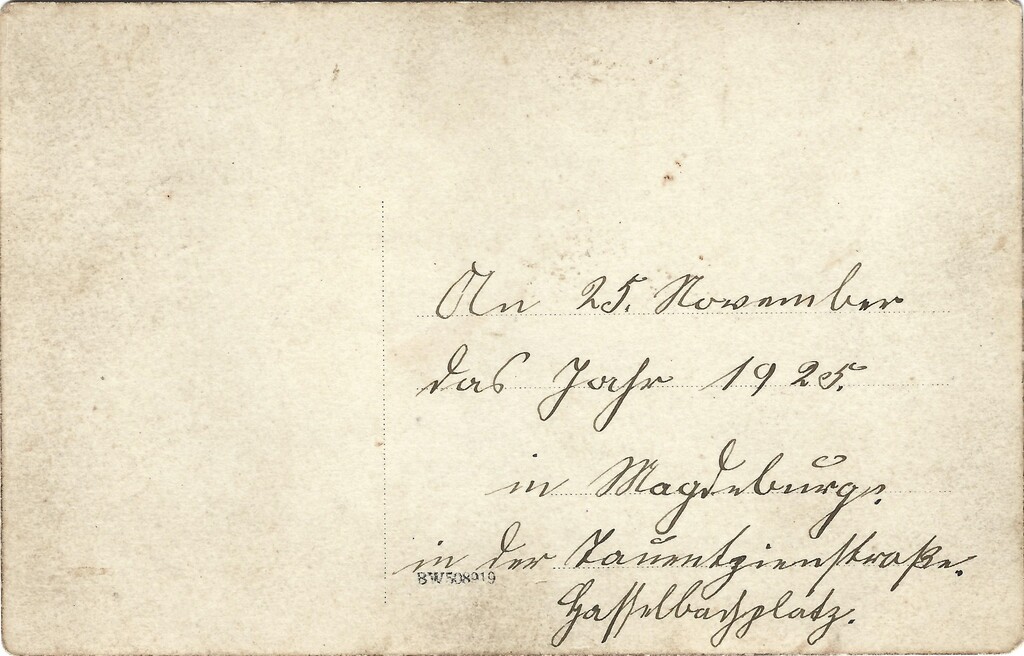 An 25. November
das Jahr 1925.
in Magdeburg.
in der Tauentzienstraße.
BW508919
Hasselbachplatz.